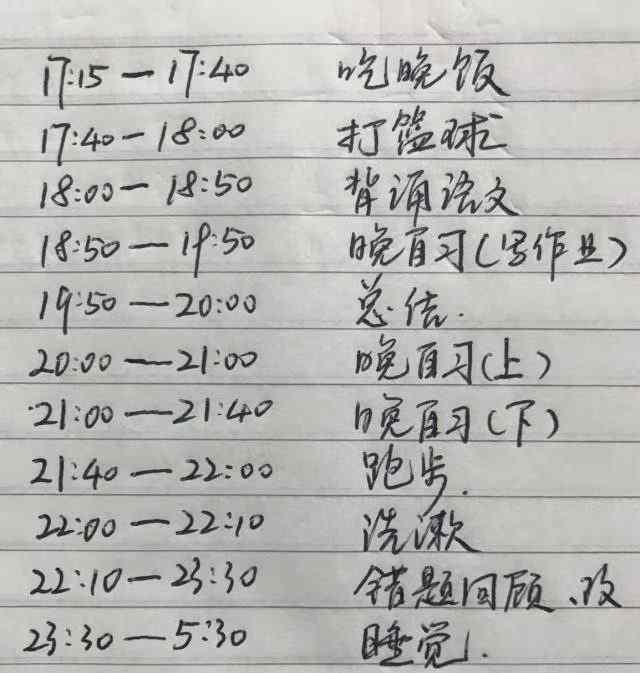 17:15 — 17:40 吃晚饭
17:40 — 18:00 打篮球
18:00 — 18:50 背诵语文
18:50 — 19:50 晚自习(写作业)
19:50 — 20:00 总结.
20:00 — 21:00 晚自习(上)
21:00 — 21:40 晚自习(下)
21:40 — 22:00 跑步.
22:00 — 22:10 洗漱
22:10 — 23:30 错题回顾、改
23:30 — 5:30 睡觉.